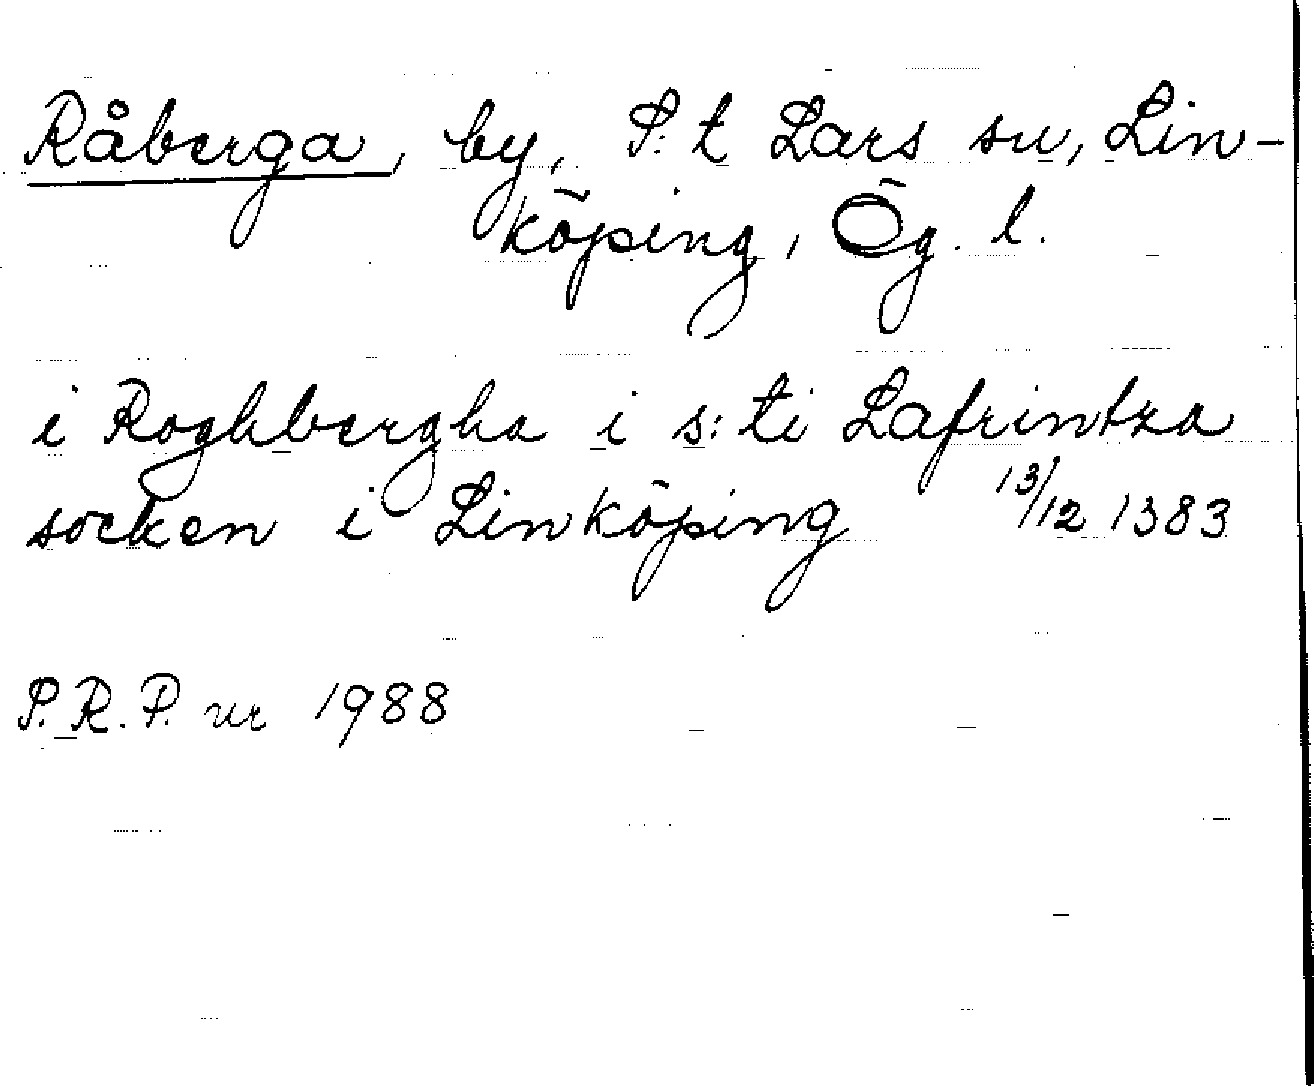 Råberga, by, S:t Lars sn, Lin-
köping, Ög. l.
i Roghbergha i s:ti Lafrintza
socken i Linköping 13/12 1383
P.R.P. nr 1988